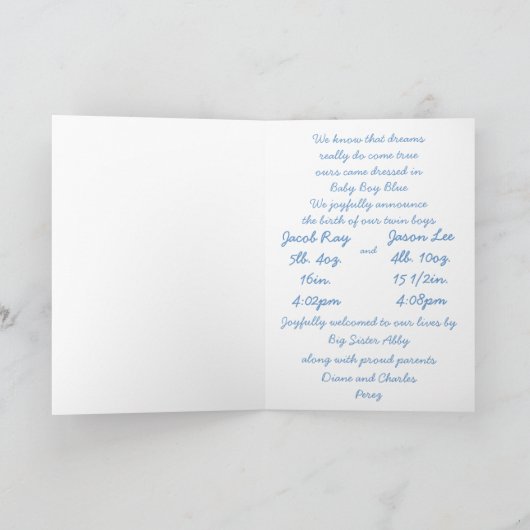 We know that dreams
really do come true
ours came dressed in
Baby Boy Blue
We joyfully announce
the birth of our twin boys
Jacob Ray and Jason Lee
5lb. 4oz. 4lb. 10oz.
16in. 15 1/2in.
4:02pm 4:08pm
Joyfully welcomed to our lives by
Big Sister Abby
along with proud parents
Diane and Charles
Perez